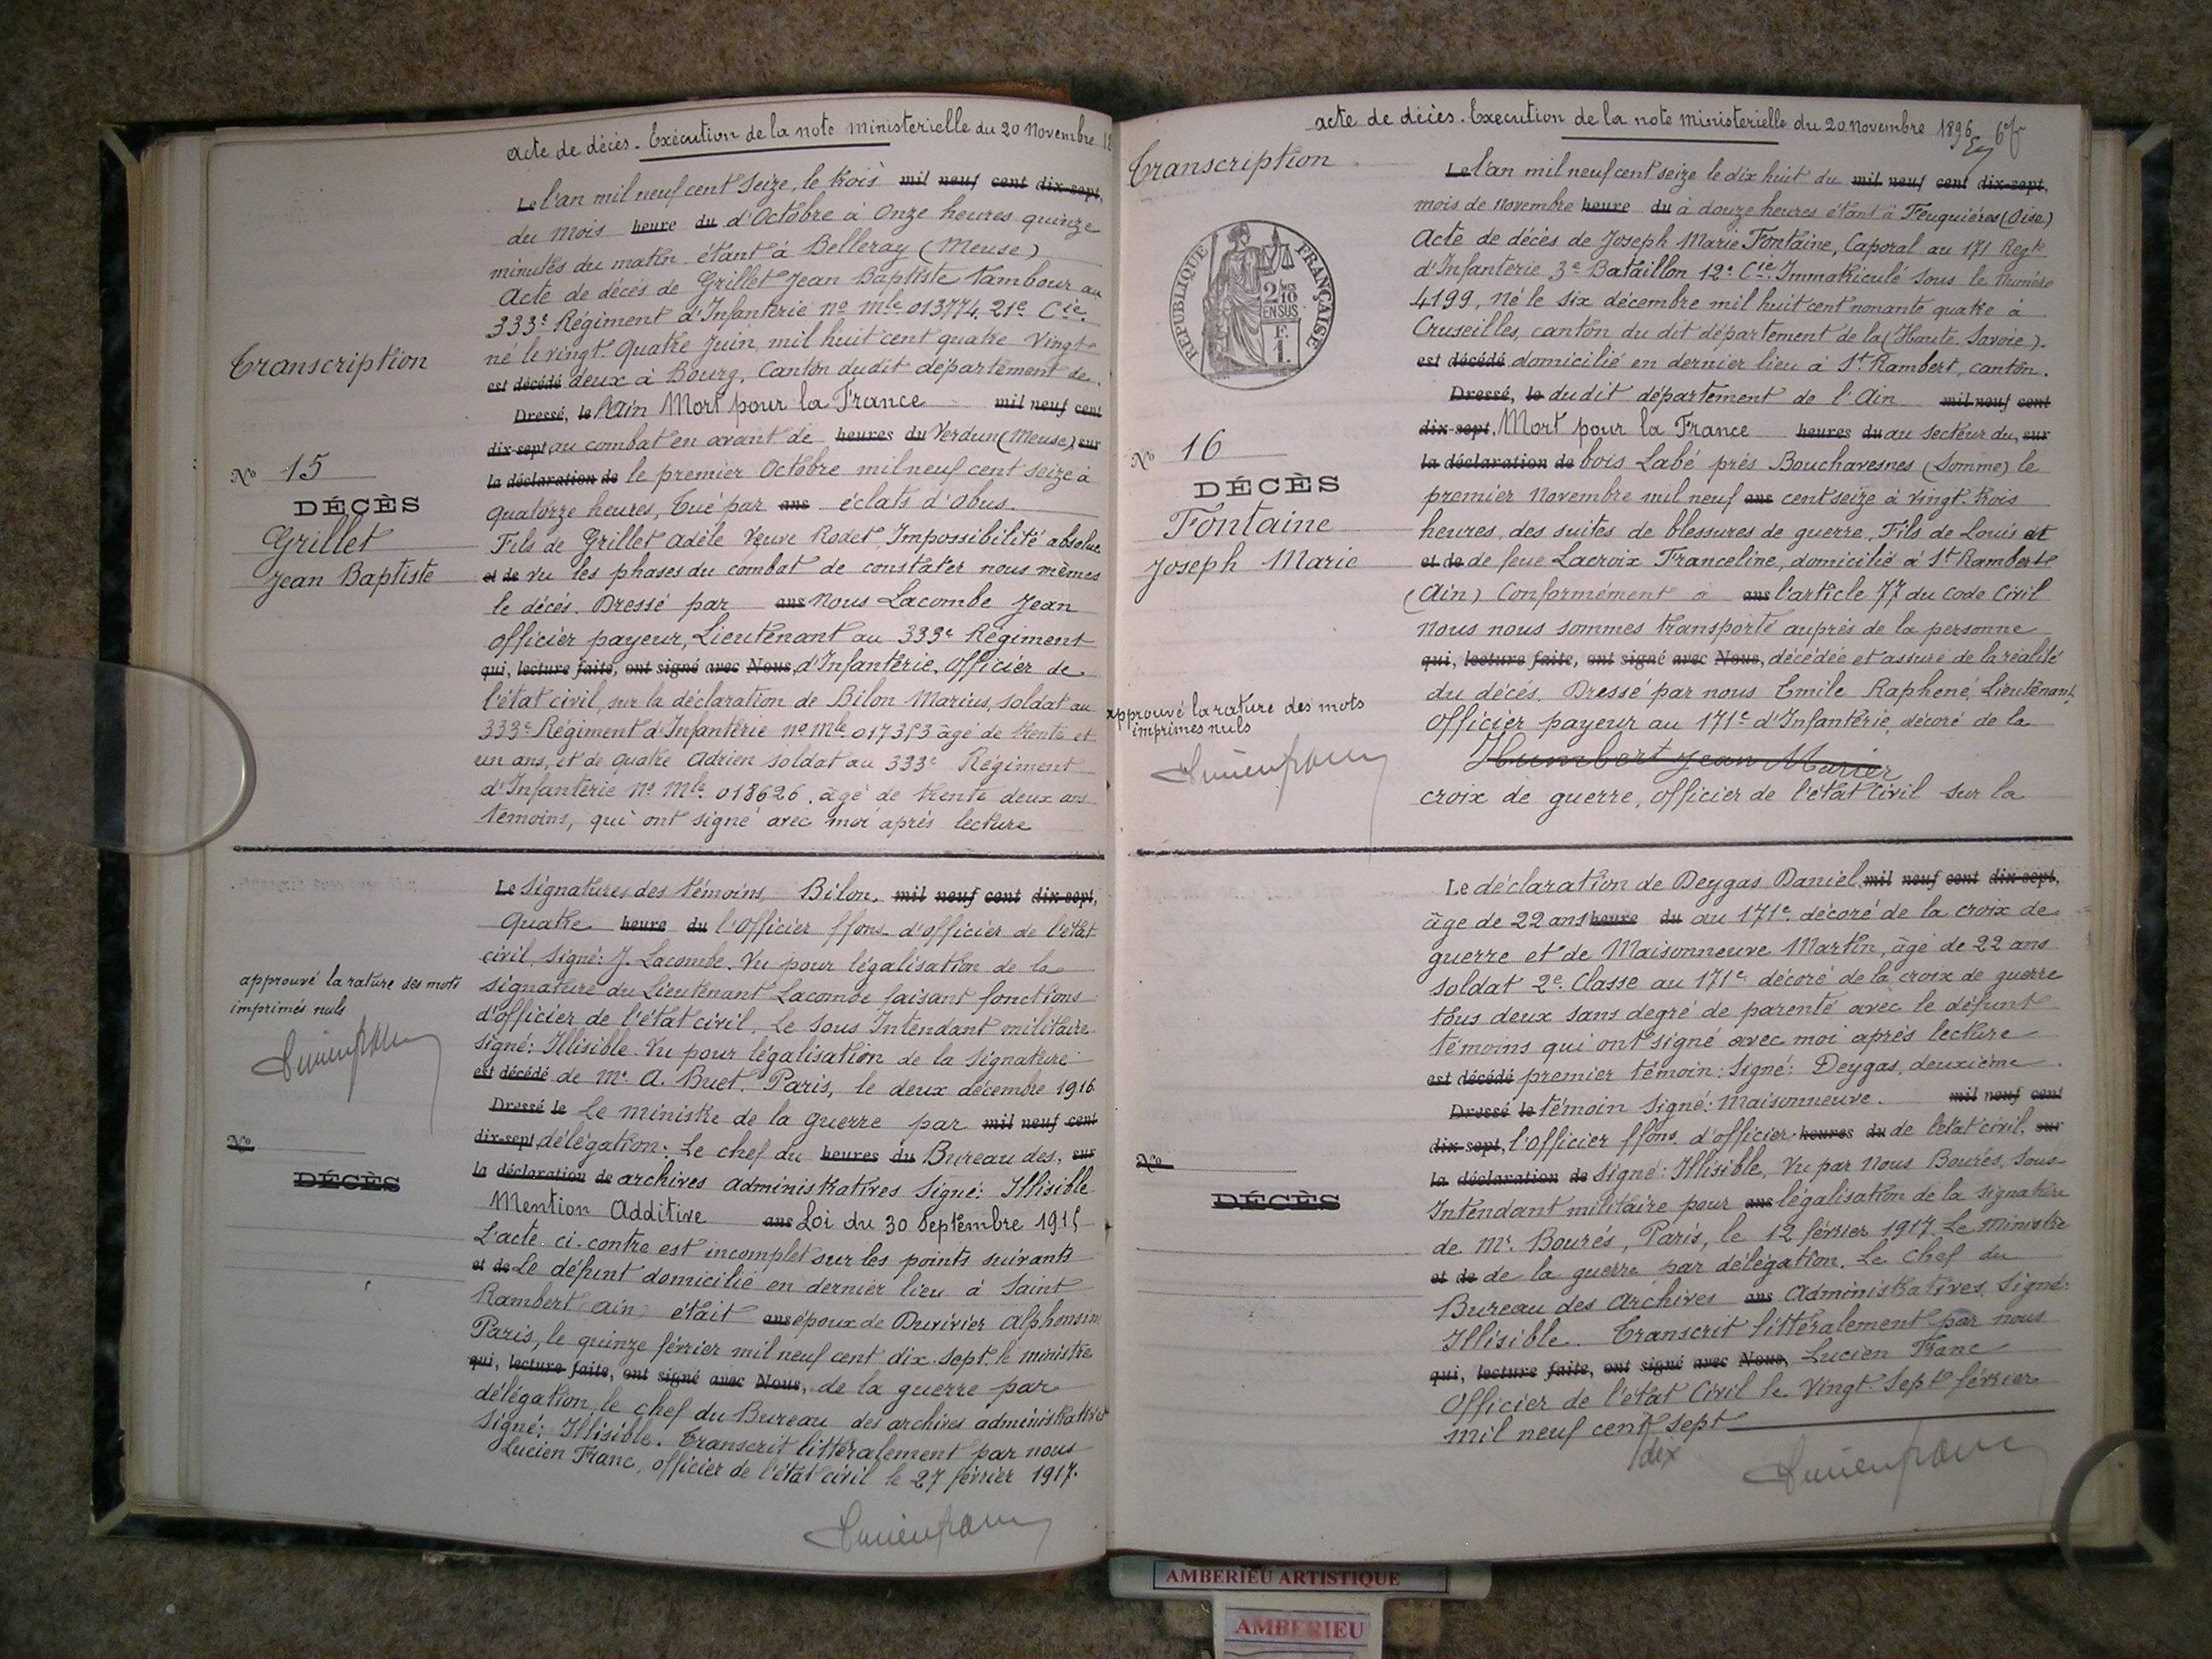 acte de décès. Exécution de la note ministerielle du 20 Novembre
Transcription
Nº 15
DÉCÈS
Grillet
Jean Baptiste
Le l'an mil neuf cent Seize, le trois mil neuf cent dix-sept,
du mois heure du d'Octobre à Onze heures quinze
minutes du matin étant à Belleray (Meuse)
Acte de décès de Grillet Jean Baptiste tambour au
333e Régiment d'Infanterie nº mle 013774, 21e Cie.
né le vingt. Quatre Juin, mil huit cent quatre Vingt
est décédé deux à Bourg, Canton dudit département de
Dressé, le l'Ain Mort pour la France mil neuf cent
dix-sept au combat en avant de heures du Verdun (Meuse) sur
la déclaration de le premier Octobre mil neuf cent seize à
quatorze heures, Tué par ans éclats d'obus.
Fils de Grillet Adèle Veuve Rodet Impossibilité absolue
et de vu les phases du combat de constater nous mêmes
le décès. Dressé par ans Nous Lacombe Jean
Officier payeur, Lieutenant au 333e Régiment
qui, lecture faite, ont signé avec Nous, d'Infanterie, Officier de
l'état civil, sur la déclaration de Bilon Marius, soldat au
333e Régiment d'Infanterie nº Mle 017353 âgé de trente et
un ans, et de Quatre Adrien soldat au 333e Régiment
d'Infanterie Nº Mle 018626, âgé de trente deux ans
témoins, qui ont signé avec moi après lecture
approuvé la rature des mots
imprimés nuls
Nº
DÉCÈS
Le Signatures des témoins, Bilon, mil neuf cent dix-sept,
Quatre heure du l'Officier ffons d'officier de l'état
civil, signé: J. Lacombe. Vu pour légalisation de la
signature du Lieutenant Lacombe faisant fonctions
d'officier de l'état civil, Le Sous Intendant militaire
signé: Illisible. Vu pour légalisation de la Signature
est décédé de Mr. A. Buet. Paris, le deux décembre 1916
Dressé le Le Ministre de la Guerre par mil neuf cent
dix-sept, délégation. Le chef du heures du Bureau des, sur
la déclaration de archives administratives Signé: Illisible
Mention Additive ans Loi du 30 Septembre 1915
L'acte ci. contre est incomplet sur les points suivants
et de Le défunt domicilié en dernier lieu à Saint
Rambert (Ain) était ans époux de Duvivier Alphonsine
Paris, le quinze février mil neuf cent dix. sept. le ministre
qui, lecture faite, ont signé avec Nous, de la guerre par
délégation, le chef du Bureau des archives administratives
Signé: Illisible. Transcrit littéralement par nous
Lucien Franc, officier de l'état civil le 27 février 1917.
Lucien Franc
acte de décès. Execution de la note Ministerielle du 20 Novembre 1896
Transcription
RÉPUBLIQUE FRANÇAISE
2/10
EN SUS
Nº 16
DÉCÈS
Fontaine
Joseph Marie
approuvé la rature des mots
imprimés nuls
Le l'an mil neuf cent seize le dix huit du mil neuf cent dix-sept,
mois de Novembre heure du à douze heures étant à Feuquières (Oise)
Acte de décès de Joseph Marie Fontaine, Caporal au 171 Regte
d'Infanterie 3e Bataillon 12e Cie. Immatriculé sous le Numéro
4199, Né le six décembre mil huit cent nonante quatre à
Cruseilles, canton du dit département de la (Haute. Savoie).
est décédé domicilié en dernier lieu à St Rambert, canton.
Dressé, le dudit département de l'Ain mil neuf cent
dix-sept, Mort pour la France heures du au secteur du, sur
la déclaration de bois Labé près Bouchavesnes (Somme) le
premier Novembre mil neuf ans cent seize à vingt. trois
heures, des suites de blessures de guerre, Fils de Louis et
et de de feue Lacroix Franceline, domicilié à St Rambert
(Ain) Conformément à ans l'article 77 du Code Civil
Nous nous sommes transporté auprès de la personne
qui, lecture faite, ont signé avec Nous, décédée et assuré de la réalité
du décès. Dressé par nous Emile Raphené, Lieutenant,
Officier payeur au 171e d'Infanterie, décoré de la
Humbert Jean Marie
croix de guerre, Officier de l'état Civil sur la
Nº
DÉCÈS
Le déclaration de Deygas Daniel, mil neuf cent dix-sept,
âge de 22 ans heure du au 171e. décoré de la croix de
guerre et de Maisonneuve Martin, âgé de 22 ans
soldat 2e. Classe au 171e décoré de la croix de guerre
tous deux sans degré de parenté avec le défunt
témoins qui ont signé avec moi après lecture
est décédé premier témoin: Signé: Deygas, deuxième
Dressé le témoin Signé: Maisonneuve. mil neuf cent
dix-sept, l'officier ffons d'officier heures du de l'état civil, sur
la déclaration de Signé: Illisible, Vu par Nous Bourés, Sous
Intendant militaire pour ans légalisation de la signature
de Mr. Bourés, Paris, le 12 février 1917. Le Ministre
et de de la guerre par délégation. Le Chef du
Bureau des Archives ans Administratives, Signé:
Illisible. Transcrit littéralement par nous
qui, lecture faite, ont signé avec Nous, Lucien Franc
Officier de l'état Civil le Vingt. Sept février
mil neuf cent sept
dix
Lucien Franc
AMBERIEU ARTISTIQUE
AMBERIEU